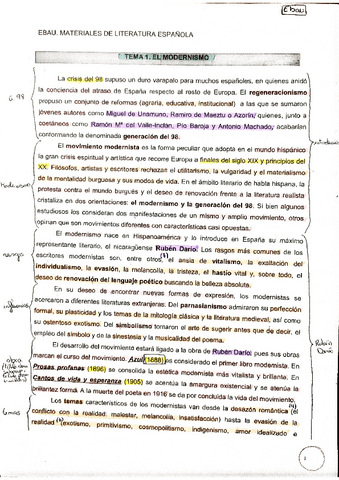 Ebau
EBAU. MATERIALES DE LITERATURA ESPAÑOLA
TEMA 1. EL MODERNISMO
La crisis del 98 supuso un duro varapalo para muchos españoles, en quienes anidó
la conciencia del atraso de España respecto al resto de Europa. El regeneracionismo
propuso un conjunto de reformas (agraria, educativa, institucional) a las que se sumaron
jóvenes autores como Miguel de Unamuno, Ramiro de Maeztu o Azorín; quienes, junto a
coetáneos como Ramón Mª del Valle-Inclán, Pío Baroja y Antonio Machado, acabarían
conformando la denominada generación del 98.
El movimiento modernista es la forma peculiar que adopta en el mundo hispánico
la gran crisis espiritual y artística que recorre Europa a finales del siglo XIX y principios del
XX. Filósofos, artistas y escritores rechazan el utilitarismo, la vulgaridad y el materialismo
de la mentalidad burguesa y sus modos de vida. En el ámbito literario de habla hispana, la
protesta contra el mundo burgués y el deseo de renovación frente a la literatura realista
cristaliza en dos orientaciones: el modernismo y la generación del 98. Si bien algunos
estudiosos los consideran dos manifestaciones de un mismo y amplio movimiento, otros
opinan que son movimientos diferentes con características casi opuestas.
El modernismo nace en Hispanoamérica y lo introduce en España su máximo
representante literario, el nicaragüense Rubén Darío. Los rasgos más comunes de los
escritores modernistas son, entre otros, el ansia de vitalismo, la exaltación del
individualismo, la evasión, la melancolía, la tristeza, el hastío vital y, sobre todo, el
deseo de renovación del lenguaje poético buscando la belleza absoluta.
En su deseo de encontrar nuevas formas de expresión, los modernistas se
acercaron a diferentes literaturas extranjeras. Del parnasianismo admiraron su perfección
formal, su plasticidad y los temas de la mitología clásica y la literatura medieval, así como
su ostentoso exotismo. Del simbolismo tomaron el arte de sugerir antes que de decir, el
empleo del símbolo y de la sinestesia y la musicalidad del poema.
El desarrollo del movimiento estará ligado a la obra de Rubén Darío, pues sus obras
marcan el curso del movimiento. Azul (1888) es considerado el primer libro modernista. En
Prosas profanas (1896) se consolida la estética modernista más vitalista y brillante. En
Cantos de vida y esperanza (1905) se acentúa la amargura existencial y se atenúa la
brillantez formal. A la muerte del poeta en 1916 se da por concluida la vida del movimiento.
Los temas característicos de los modernistas van desde la desazón romántica (el
conflicto con la realidad: malestar, melancolía, insatisfacción) hasta la evasión de la
realidad (exotismo, primitivismo, cosmopolitismo, indigenismo, amor idealizado e
Rubén
Darío
1